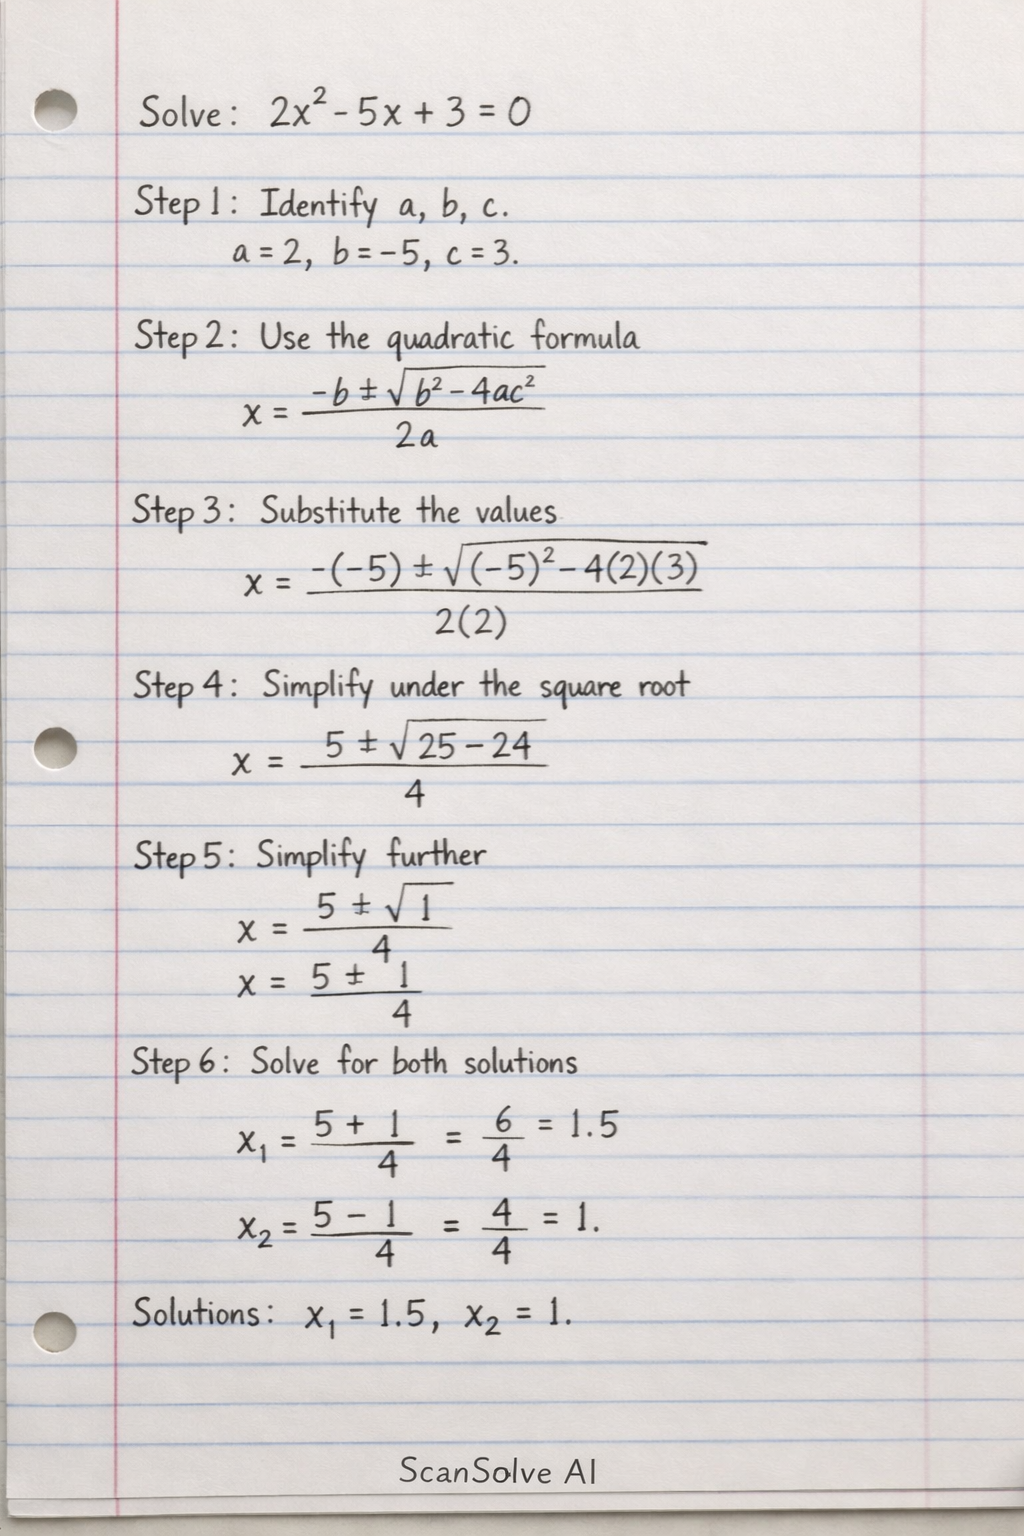 Solve: 2x² - 5x + 3 = 0
Step 1: Identify a, b, c.
a = 2, b = -5, c = 3.
Step 2: Use the quadratic formula
x = (-b ± √(b² - 4ac²)) / 2a
Step 3: Substitute the values
x = (-(-5) ± √((-5)² - 4(2)(3))) / 2(2)
Step 4: Simplify under the square root
x = (5 ± √(25 - 24)) / 4
Step 5: Simplify further
x = (5 ± √1) / 4
x = (5 ± 1) / 4
Step 6: Solve for both solutions
x₁ = (5 + 1) / 4 = 6/4 = 1.5
x₂ = (5 - 1) / 4 = 4/4 = 1.
Solutions: x₁ = 1.5, x₂ = 1.
ScanSolve AI